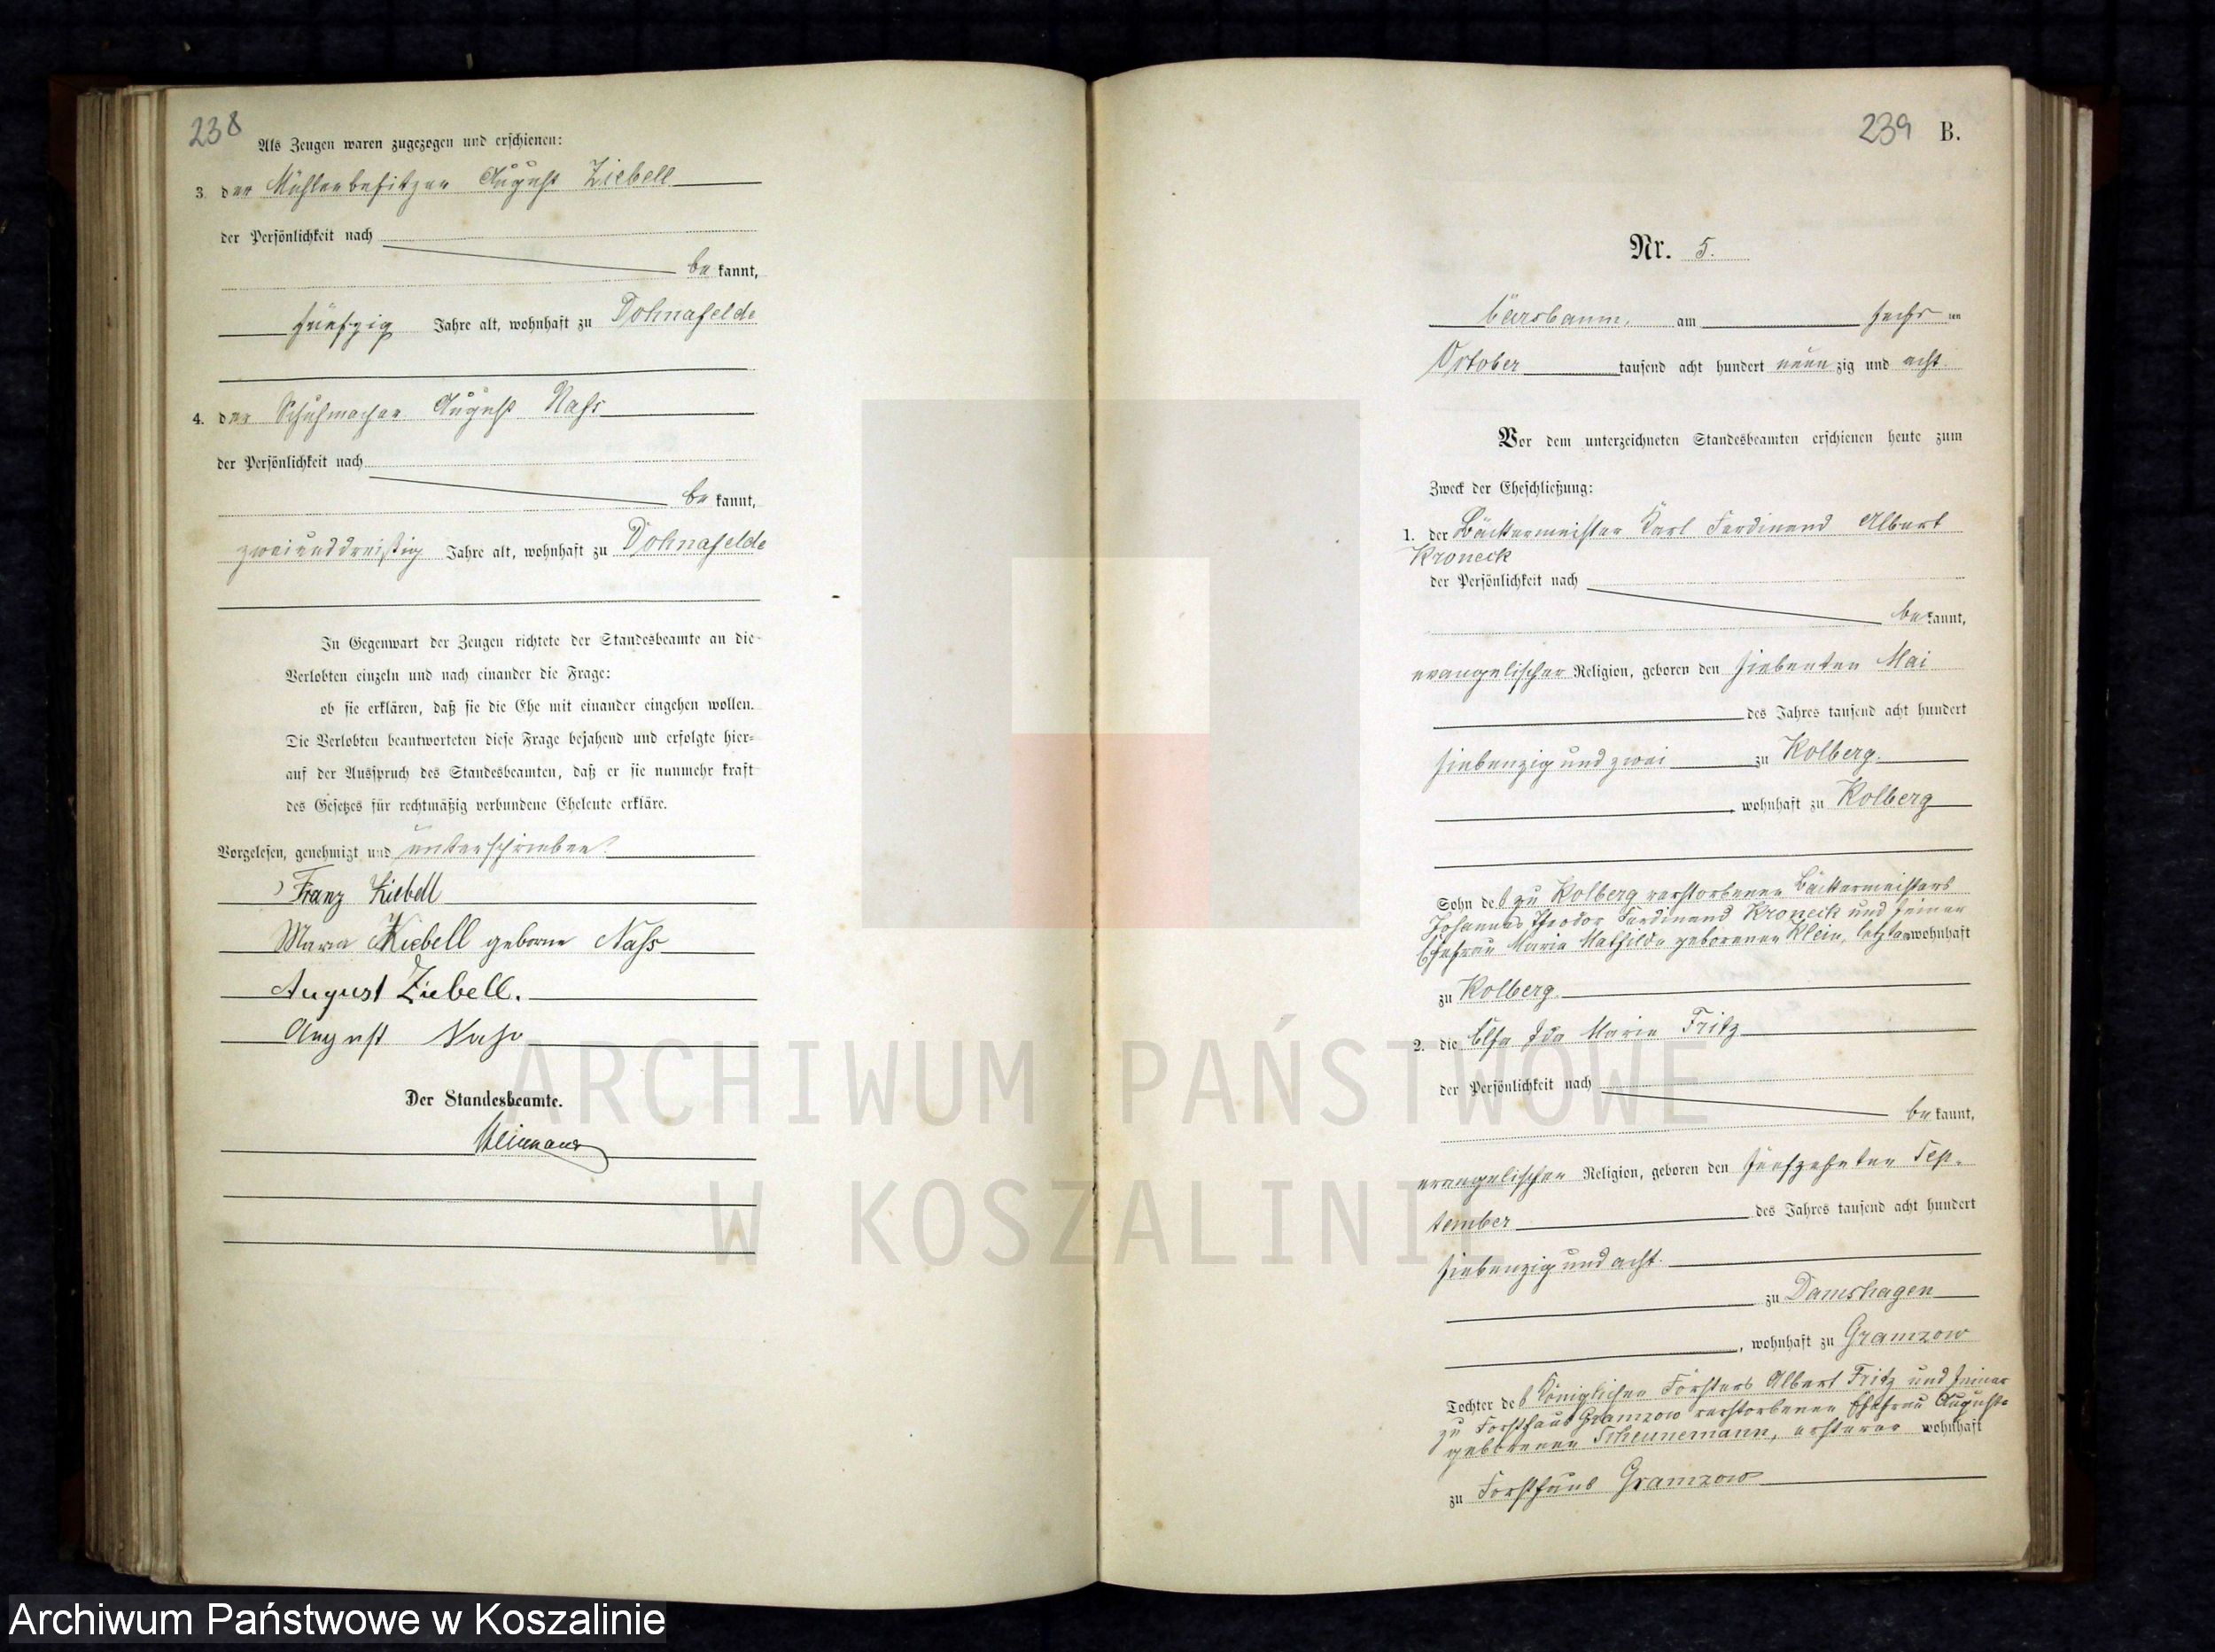 238
Als Zeugen waren zugezogen und erschienen:
3. der Mühlenbesitzer August Ziebell
der Persönlichkeit nach
be kannt,
fünfzig Jahre alt, wohnhaft zu Dohnafelde
4. der Schuhmacher August Nass
der Persönlichkeit nach
be kannt,
zweiunddreißig Jahre alt, wohnhaft zu Dohnafelde
In Gegenwart der Zeugen richtete der Standesbeamte an die
Verlobten einzeln und nach einander die Frage:
ob sie erklären, daß sie die Ehe mit einander eingehen wollen.
Die Verlobten beantworteten diese Frage bejahend und erfolgte hier-
auf der Ausspruch des Standesbeamten, daß er sie nunmehr kraft
des Gesetzes für rechtmäßig verbundene Eheleute erkläre.
Vorgelesen, genehmigt und unterschrieben.
Franz Ziebell
Maria Ziebell geborne Nass
August Ziebell.
August Nass
Der Standesbeamte.
239 B.
Nr. 5.
am sechs ten
October tausend acht hundert neun zig und acht
Vor dem unterzeichneten Standesbeamten erschienen heute zum
Zweck der Eheschließung:
1. der Bäckermeister Karl Ferdinand Albert
Kroneck
der Persönlichkeit nach
be kannt,
evangelischer Religion, geboren den siebenten Mai
des Jahres tausend acht hundert
siebenzig und zwei zu Kolberg.
, wohnhaft zu Kolberg
Sohn des zu Kolberg verstorbenen Bäckermeisters
Johannes Theodor Ferdinand Kroneck und seiner
Ehefrau Maria Mathilde geborenen Klein, letztere wohnhaft
zu Kolberg.
2. die Elsa Ida Marie Fritz
der Persönlichkeit nach
be kannt,
evangelischer Religion, geboren den fünfzehnten Sep-
tember des Jahres tausend acht hundert
siebenzig und acht.
zu Damshagen
, wohnhaft zu Gramzow
Tochter des Königlichen Försters Albert Fritz und seiner
zu Forsthaus Gramzow verstorbenen Ehefrau Auguste
geborenen Scheunemann, ersterer wohnhaft
zu Forsthaus Gramzow
ARCHIWUM PAŃSTWOWE
W KOSZALINIE
Archiwum Państwowe w Koszalinie